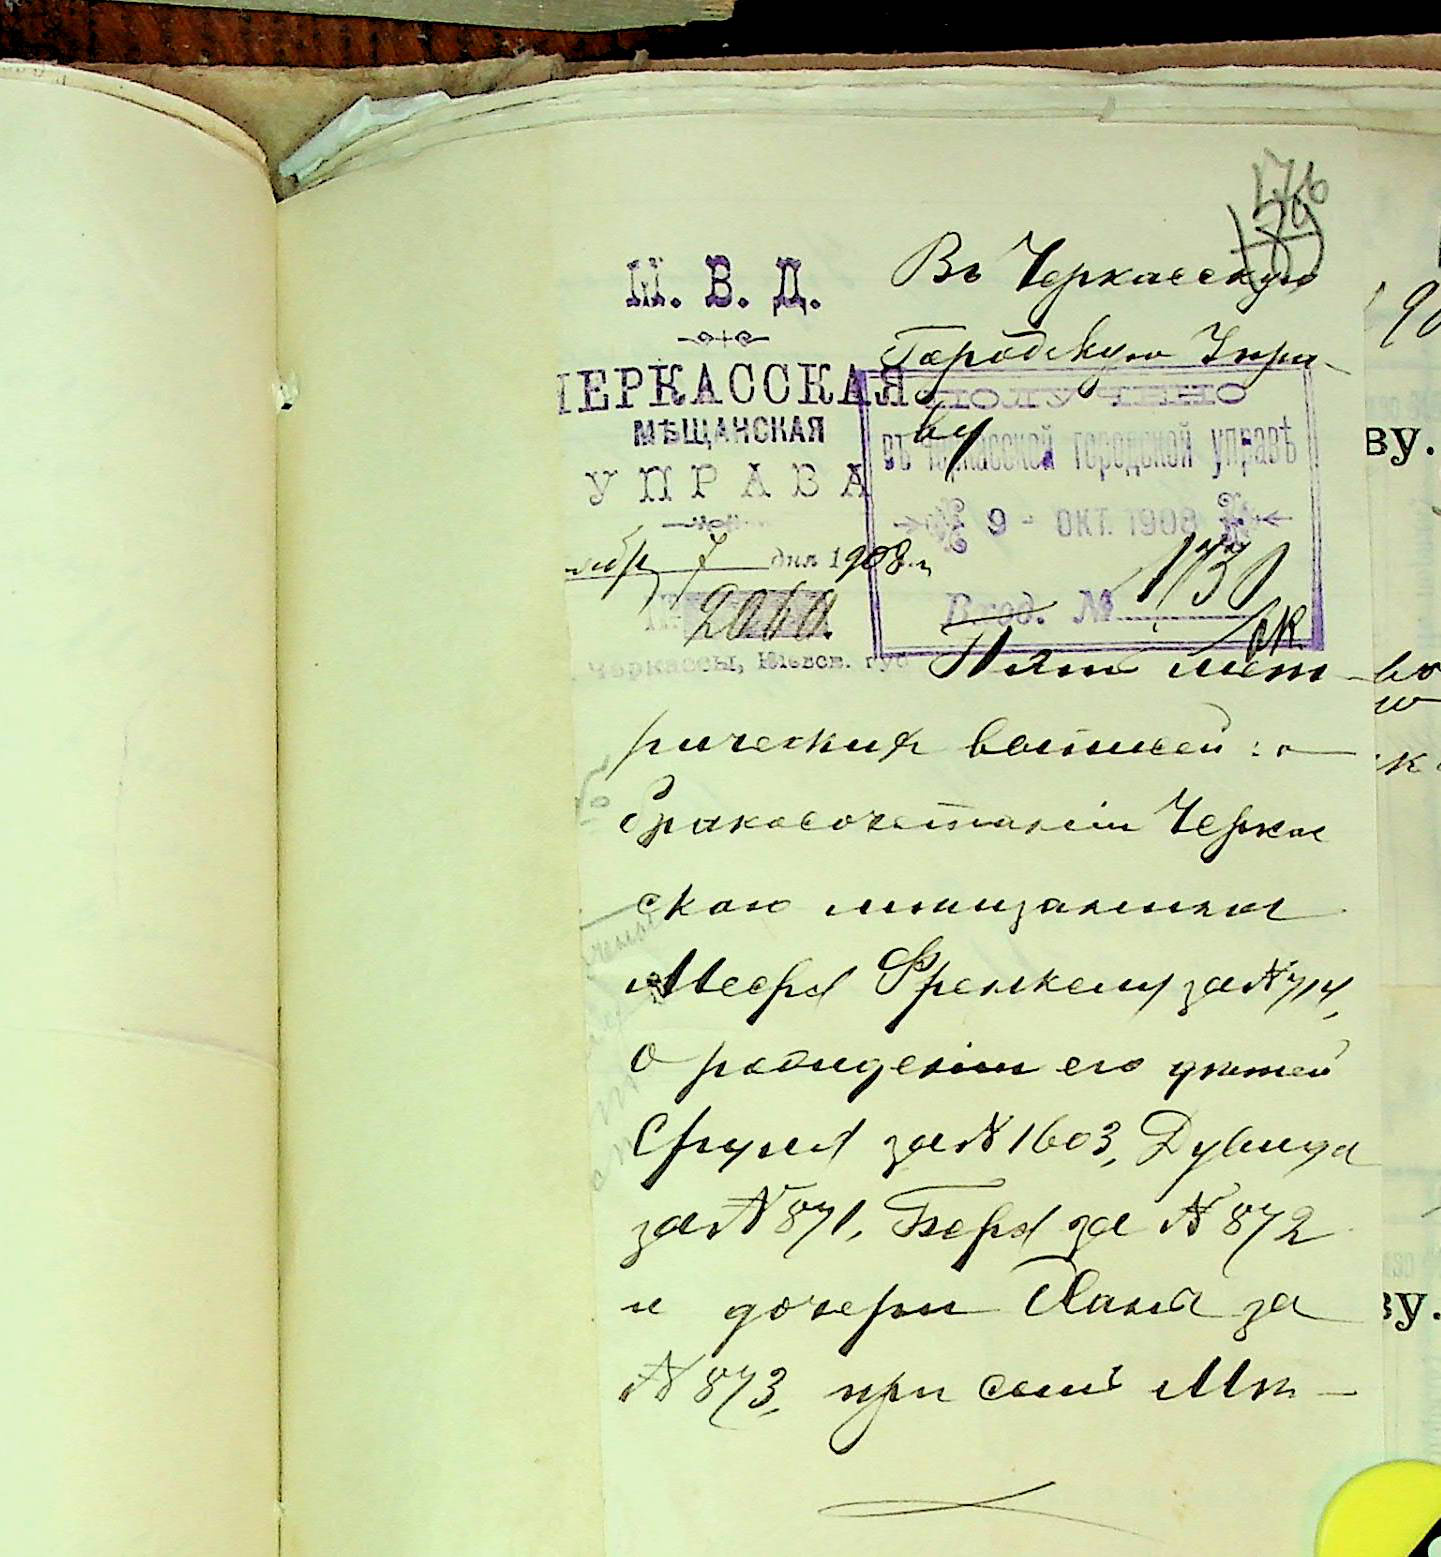 176
М. В. Д.
ЧЕРКАССКАЯ
МѢЩАНСКАЯ
УПРАВА
7 дня 1908 г.
№ 2060.
Черкассы, Кіевск. губ
Въ Черкасскую
Городскую Упра-
ву
ПОЛУЧЕНО
въ Черкасской городской управѣ
9 - ОКТ. 1908
Вход. № 1731
Пять мет-
рическихъ выписей: о
бракосочетаніи Черкас
скаго мѣщанина
Меера Френкеля за № 714,
о рожденіи его дѣтей
Сруля за № 1603, Дувида
за № 871, Бера за № 872
и дочери Хана за
№ 873, при семъ Мѣ-
ву.
ву.